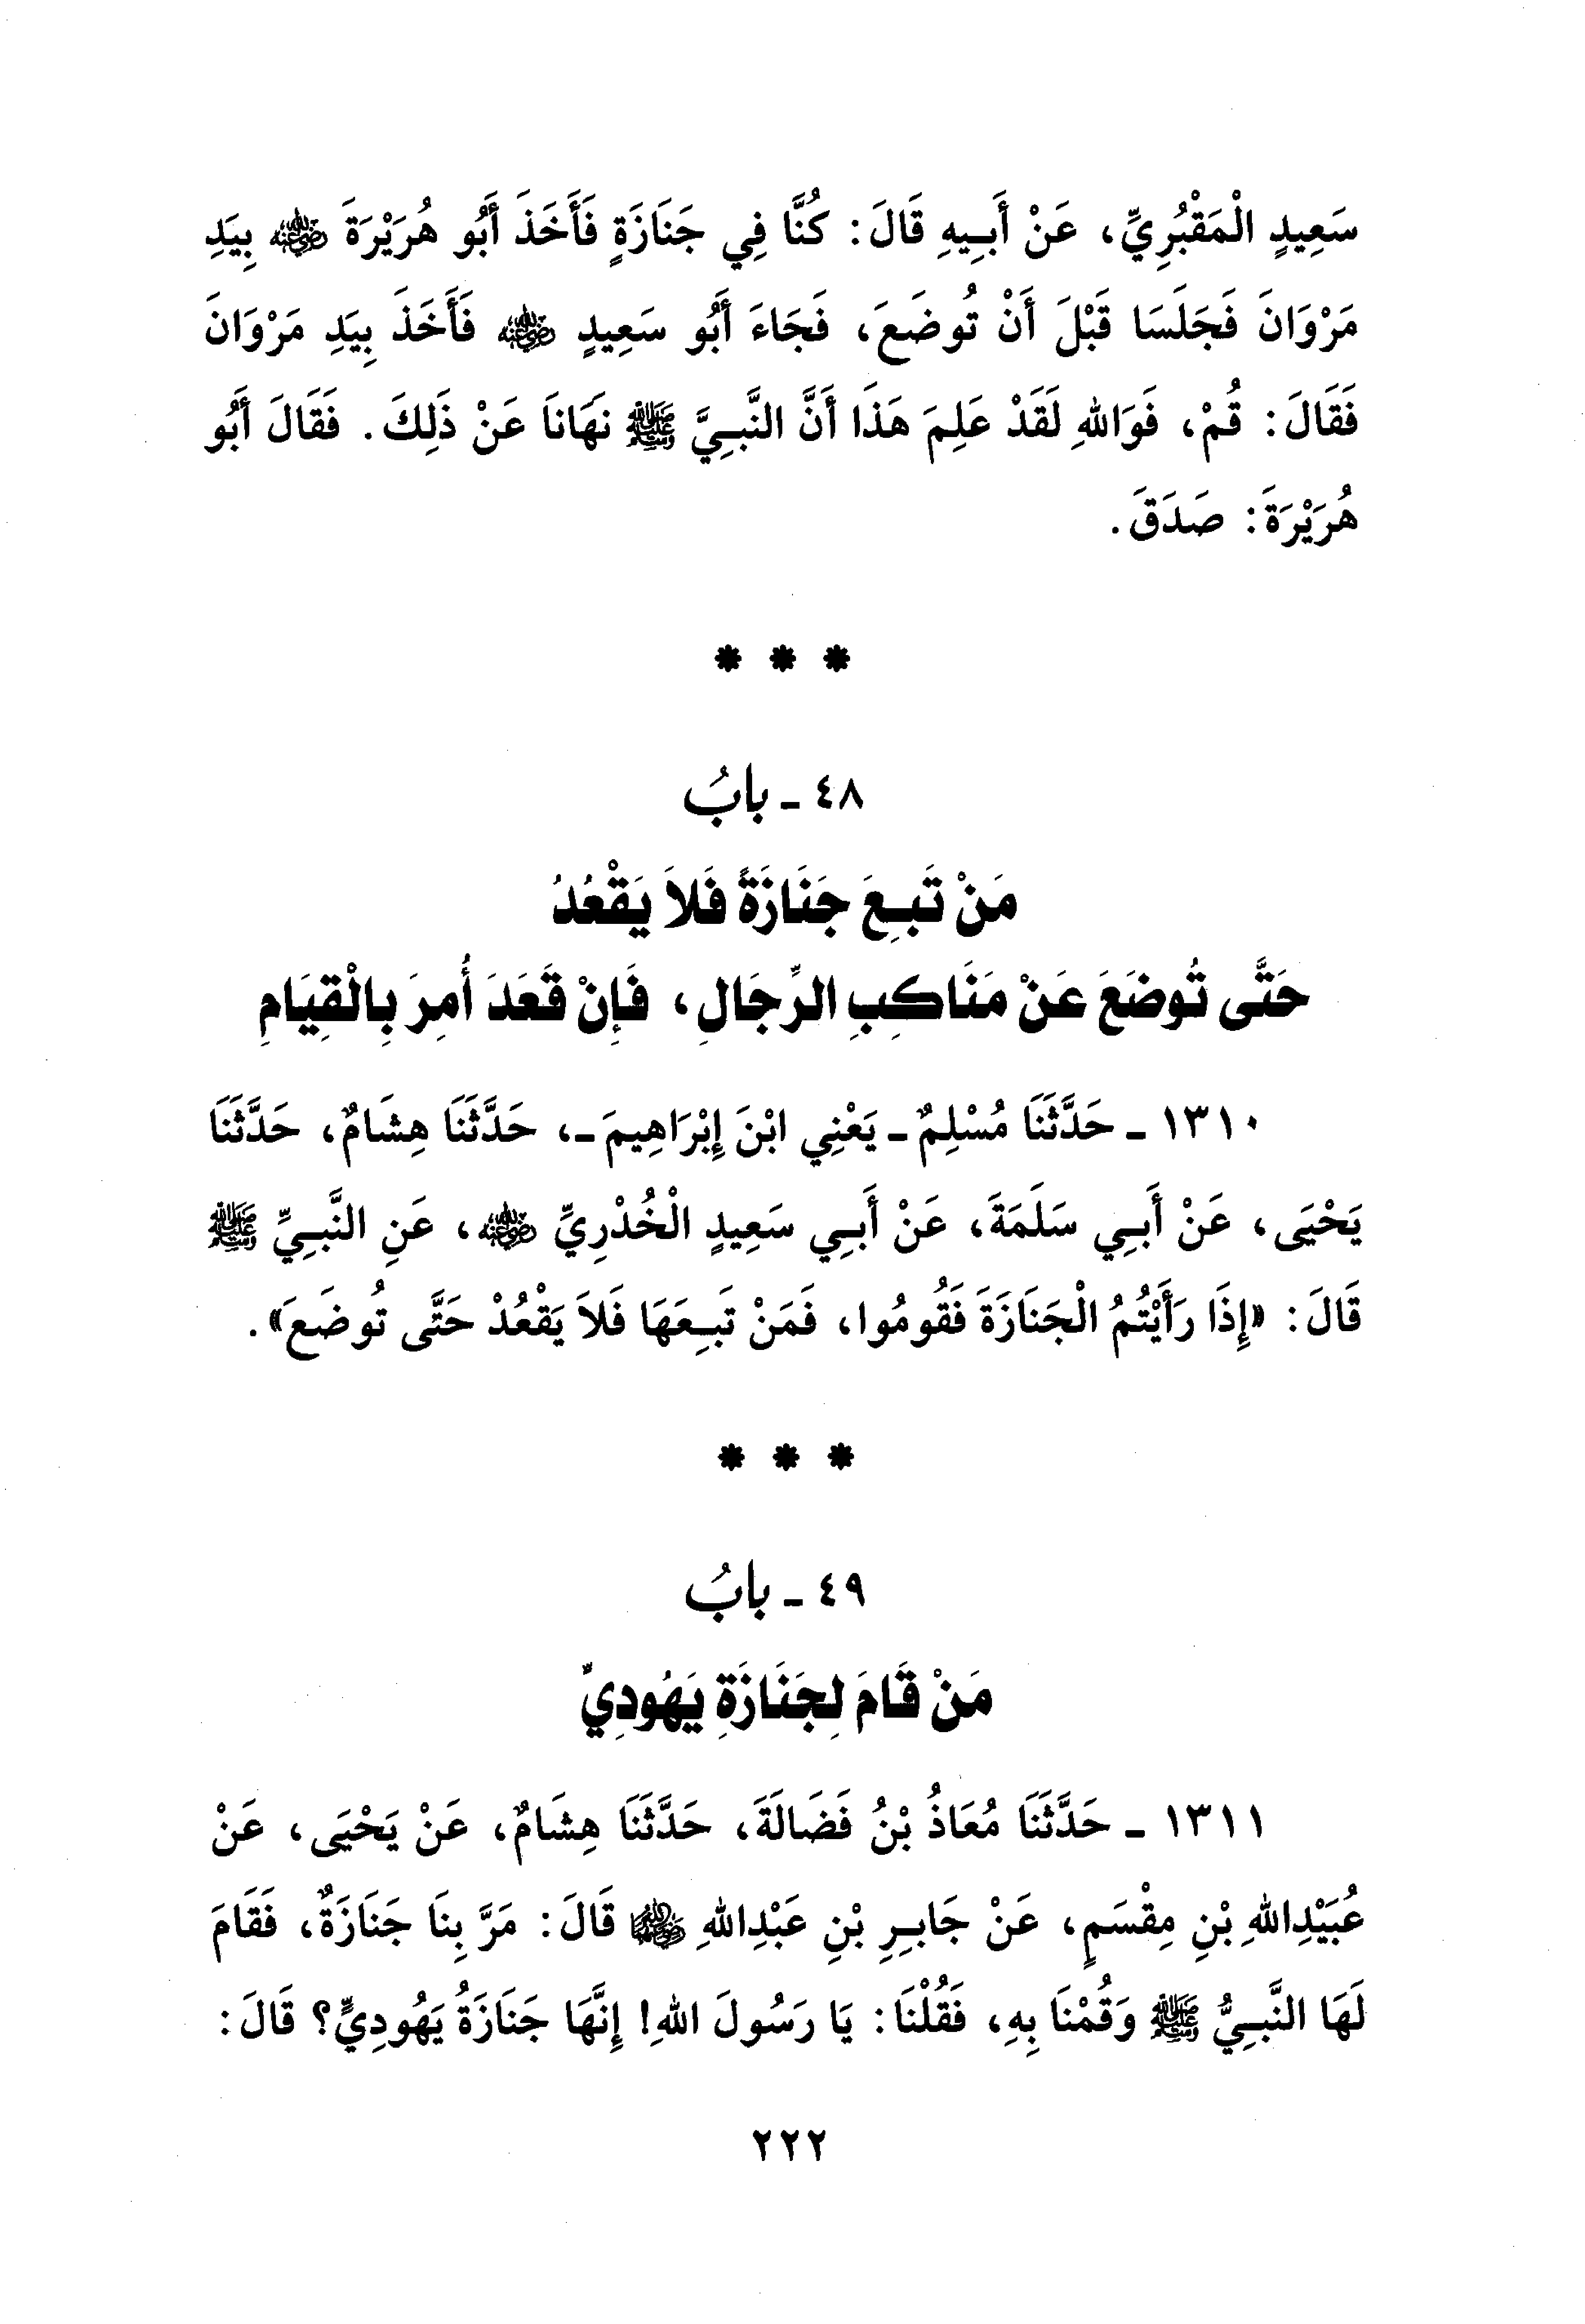 سَعِيدٍ الْمَقْبُرِيِّ، عَنْ أَبِيهِ قَالَ: كُنَّا فِي جَنَازَةٍ فَأَخَذَ أَبُو هُرَيْرَةَ رضي الله عنه بِيَدِ
مَرْوَانَ فَجَلَسَا قَبْلَ أَنْ تُوضَعَ، فَجَاءَ أَبُو سَعِيدٍ رضي الله عنه فَأَخَذَ بِيَدِ مَرْوَانَ
فَقَالَ: قُمْ، فَوَاللهِ لَقَدْ عَلِمَ هَذَا أَنَّ النَّبِيَّ ﷺ نَهَانَا عَنْ ذَلِكَ. فَقَالَ أَبُو
هُرَيْرَةَ: صَدَقَ.
* * *
٤٨ ـ بابُ
مَنْ تَبِعَ جَنَازَةً فَلاَ يَقْعُدُ
حَتَّى تُوضَعَ عَنْ مَنَاكِبِ الرِّجَالِ، فَإِنْ قَعَدَ أُمِرَ بِالْقِيَامِ
١٣١٠ ـ حَدَّثَنَا مُسْلِمٌ ـ يَعْنِي ابْنَ إِبْرَاهِيمَ ـ، حَدَّثَنَا هِشَامٌ، حَدَّثَنَا
يَحْيَى، عَنْ أَبِي سَلَمَةَ، عَنْ أَبِي سَعِيدٍ الْخُدْرِيِّ رضي الله عنه، عَنِ النَّبِيِّ ﷺ
قَالَ: «إِذَا رَأَيْتُمُ الْجَنَازَةَ فَقُومُوا، فَمَنْ تَبِعَهَا فَلاَ يَقْعُدْ حَتَّى تُوضَعَ».
* * *
٤٩ ـ بابُ
مَنْ قَامَ لِجَنَازَةِ يَهُودِيٍّ
١٣١١ ـ حَدَّثَنَا مُعَاذُ بْنُ فَضَالَةَ، حَدَّثَنَا هِشَامٌ، عَنْ يَحْيَى، عَنْ
عُبَيْدِاللهِ بْنِ مِقْسَمٍ، عَنْ جَابِرِ بْنِ عَبْدِاللهِ رضي الله عنهما قَالَ: مَرَّ بِنَا جَنَازَةٌ، فَقَامَ
لَهَا النَّبِيُّ ﷺ وَقُمْنَا بِهِ، فَقُلْنَا: يَا رَسُولَ اللهِ! إِنَّهَا جَنَازَةُ يَهُودِيٍّ؟ قَالَ:
٢٢٢